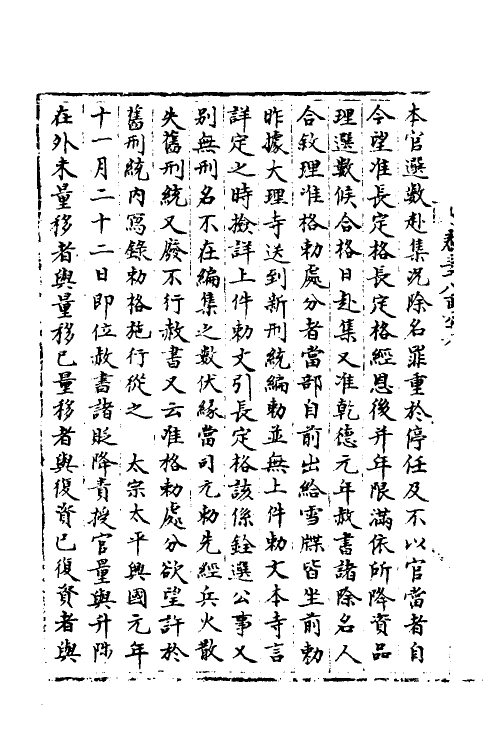 本官選數赴集况除名罪重於停任及不以官當者自
今望准長定格長定格經恩後并年限滿依所降資品
理選數候合格日赴集又准乾德元年赦書諸除名人
合敘理准格勑處分者當部自前出給雪牒皆坐前勑
昨據大理寺送到新刑統編勑並無上件勑文本寺言
詳定之時撿詳上件勑文引長定格該係銓選公事又
别無刑名不在編集之數伏緣當司元勑先經兵火散
失舊刑統又廢不行赦書又云准格勑處分欲望許於
舊刑統内寫錄勑格施行從之　太宗太平興國元年
十一月二十二日即位赦書諸貶降責授官量與升陟
在外未量移者與量移已量移者與復資已復資者與